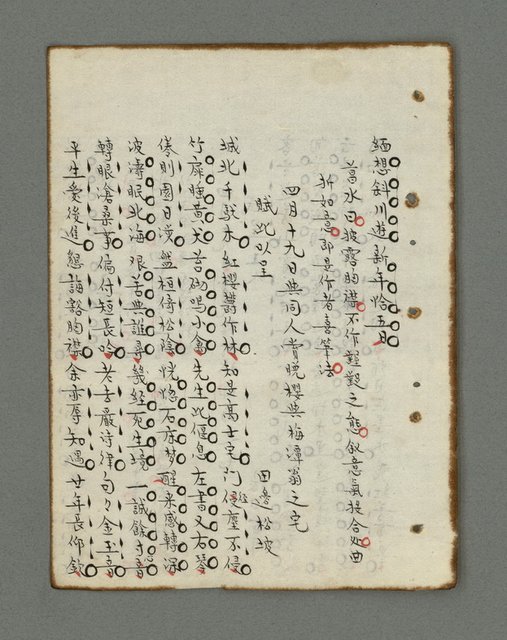 緬想斜川遊新年恰五日
葛水曰披露胸襟不作艱難之態叙意氣投合如曲
折如意洵是作者喜筆法
四月十九日與同人賞晚櫻與梅潭翁之宅
賦此以呈
田邊松坡
城北千駄木紅櫻鬱作林知是高士宅門徑塵不侵
竹扉睡黄犬苔砌鳴小禽先生此偃息左書又右琴
倦則園日涉盤桓倚松陰恍惚石床夢醒來感轉深
波濤眠北海艱苦與誰尋幾經死生境一誠餘寸音
轉眼滄桑事偏付短長吟老去嚴詩律句々金玉音
平生愛後進懇誨豁胸襟余亦辱知遇廿年長仰欽